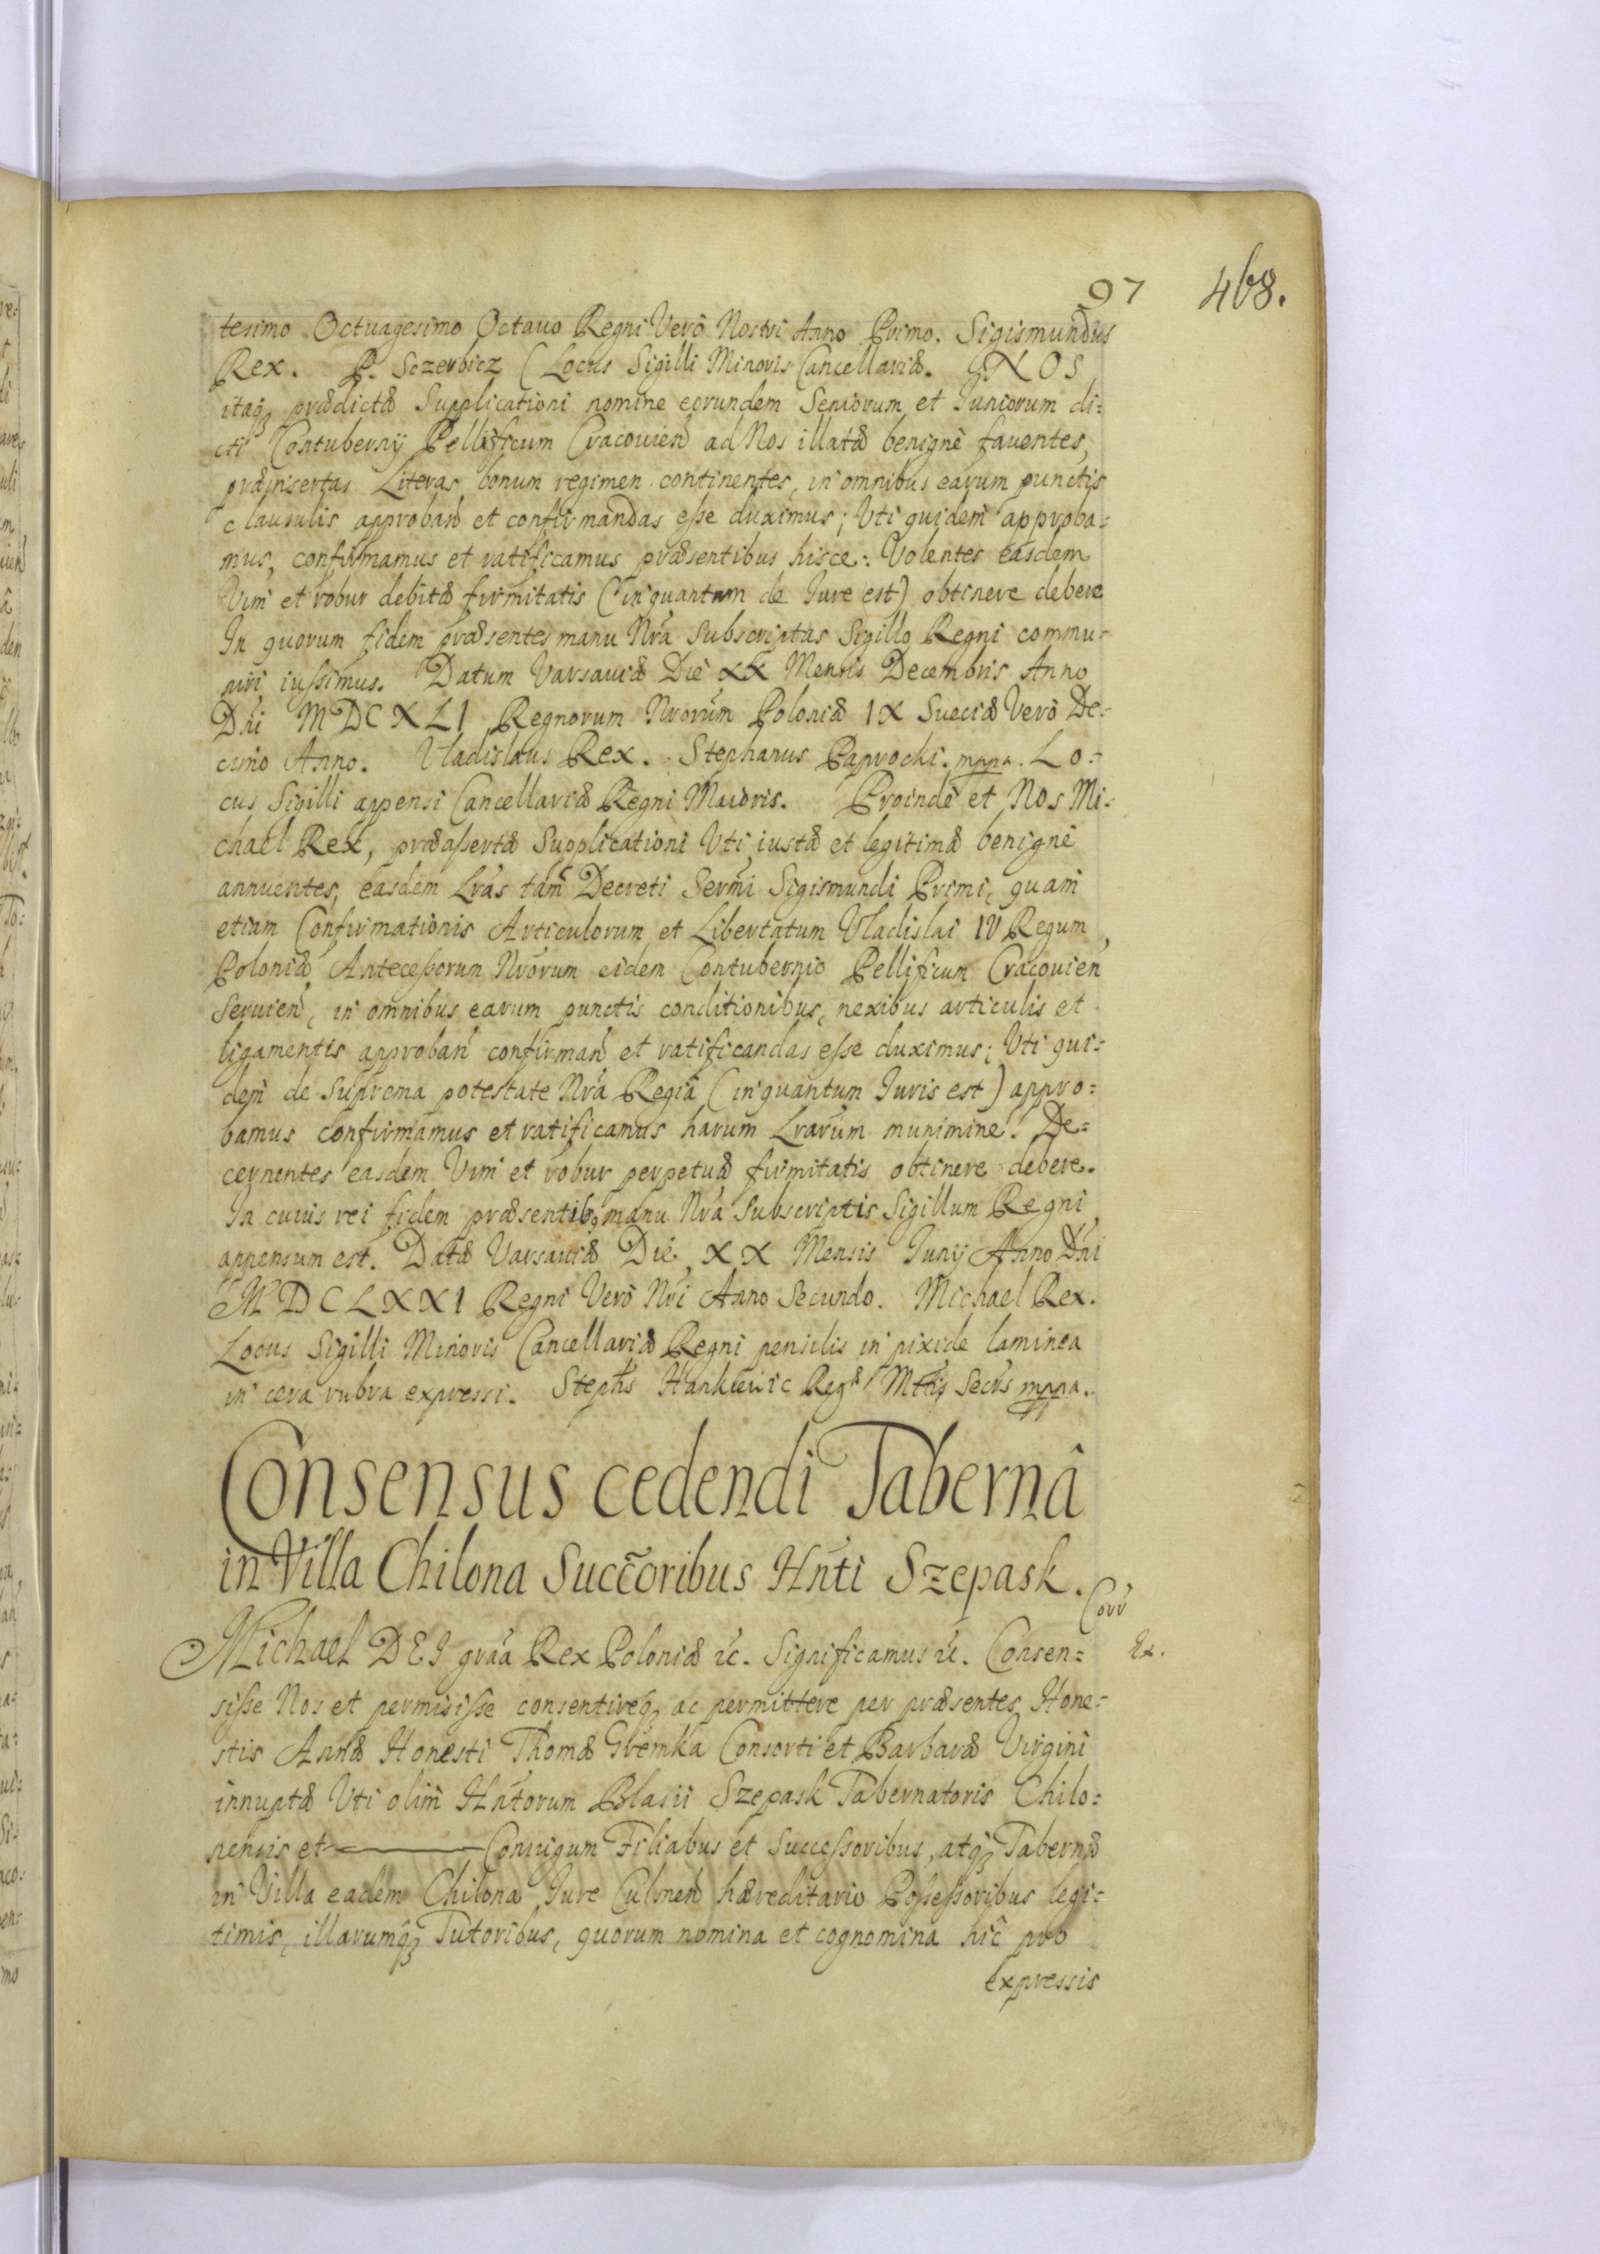 97 468.
tesimo Octuagesimo Octauo Regni Verò Nostri Anno Primo. Sigismundus
Rex. P. Sczerbicz (Locus Sigilli Minoris Cancellariæ. NOS
itaq₃ prædictæ Supplicationi nomine eorundem Seniorum et Iuniorum di=
cti Contubernÿ Pellificum Cracouien̄ ad Nos illatæ benignè fauentes,
præinsertas Literas bonum regimen continentes, in omnibus earum punctis
clausulis approban̄ et confirmandas eſse duximus; Vti quidem approba=
mus, confirmamus et ratificamus præsentibus hisce: Volentes easdem
Vim et robur debitæ firmitatis (in quantum de Iure est) obtinere debere
In quorum fidem præsentes manu Nrã Subscriptas Sigillo Regni commu=
niri iuſsimus. Datum Varsauiæ Die XX Mensis Decembris Anno
Dni MDCXLI Regnorum Nrorum Poloniæ IX Sueciæ Verò De=
cimo Anno. Vladislaus Rex. Stephanus Paprocki. mppa. Lo=
cus Sigilli appensi Cancellariæ Regni Maioris. Proindè et Nos Mi=
chael Rex, præaſsertæ Supplicationi Vti iustæ et legitimæ benignè
annuentes, easdem Lrãs tam Decreti Sermi Sigismundi Primi, quam
etiam Confirmationis Articulorum et Libertatum Vladislai IV Regum
Poloniæ, Anteceſsorum Nrorum eidem Contubernio Pellificum Cracouien̄
Seruien̄, in omnibus earum punctis conditionibus, nexibus articulis et
ligamentis approban̄ confirman̄ et ratificandas eſse duximus; Vti qui=
dem de Suprema potestate Nrã Regiâ (in quantum Iuris est) appro=
bamus confirmamus et ratificamus harum Lrarum munimine. De=
cernentes easdem Vim et robur perpetuæ firmitatis obtinere debere.
In cuius rei fidem præsentib₉ manu Nrã Subscriptis Sigillum Regni
appensum est. Datæ Varsauiæ Die XX Mensis Iunÿ Anno Dni
MDCLXXI Regni Verò Nri Anno Secundo. Michael Rex.
Locus Sigilli Minoris Cancellariæ Regni pensilis in pixide laminea
in cera rubra expressi. Stephs Hankiewic Regæ Mttis Secrs mppa.
Consensus cedendi Tabernâ
in Villa Chilona Succoribus Hnti Szepask.
Corr
Michael DEI grãa Rex Poloniæ &c. Significamus &c. Consen=
Ex.
siſse Nos et permisiſse consentireq₃ ac permittere per præsentes Hone=
stis Annæ Honesti Thomæ Gremka Consorti et Barbaræ Virgini
innuptæ Vti olim Hntorum Blasii Szepask Tabernatoris Chilo=
nensis et ——— Coniugum Filiabus et Succeſsoribus, atq₃ Tabernæ
in Villa eadem Chilona Iure Culmen̄ hæreditario Poſseſsoribus legi=
timis, illarumq₃ Tutoribus, quorum nomina et cognomina hîc pro
expressis